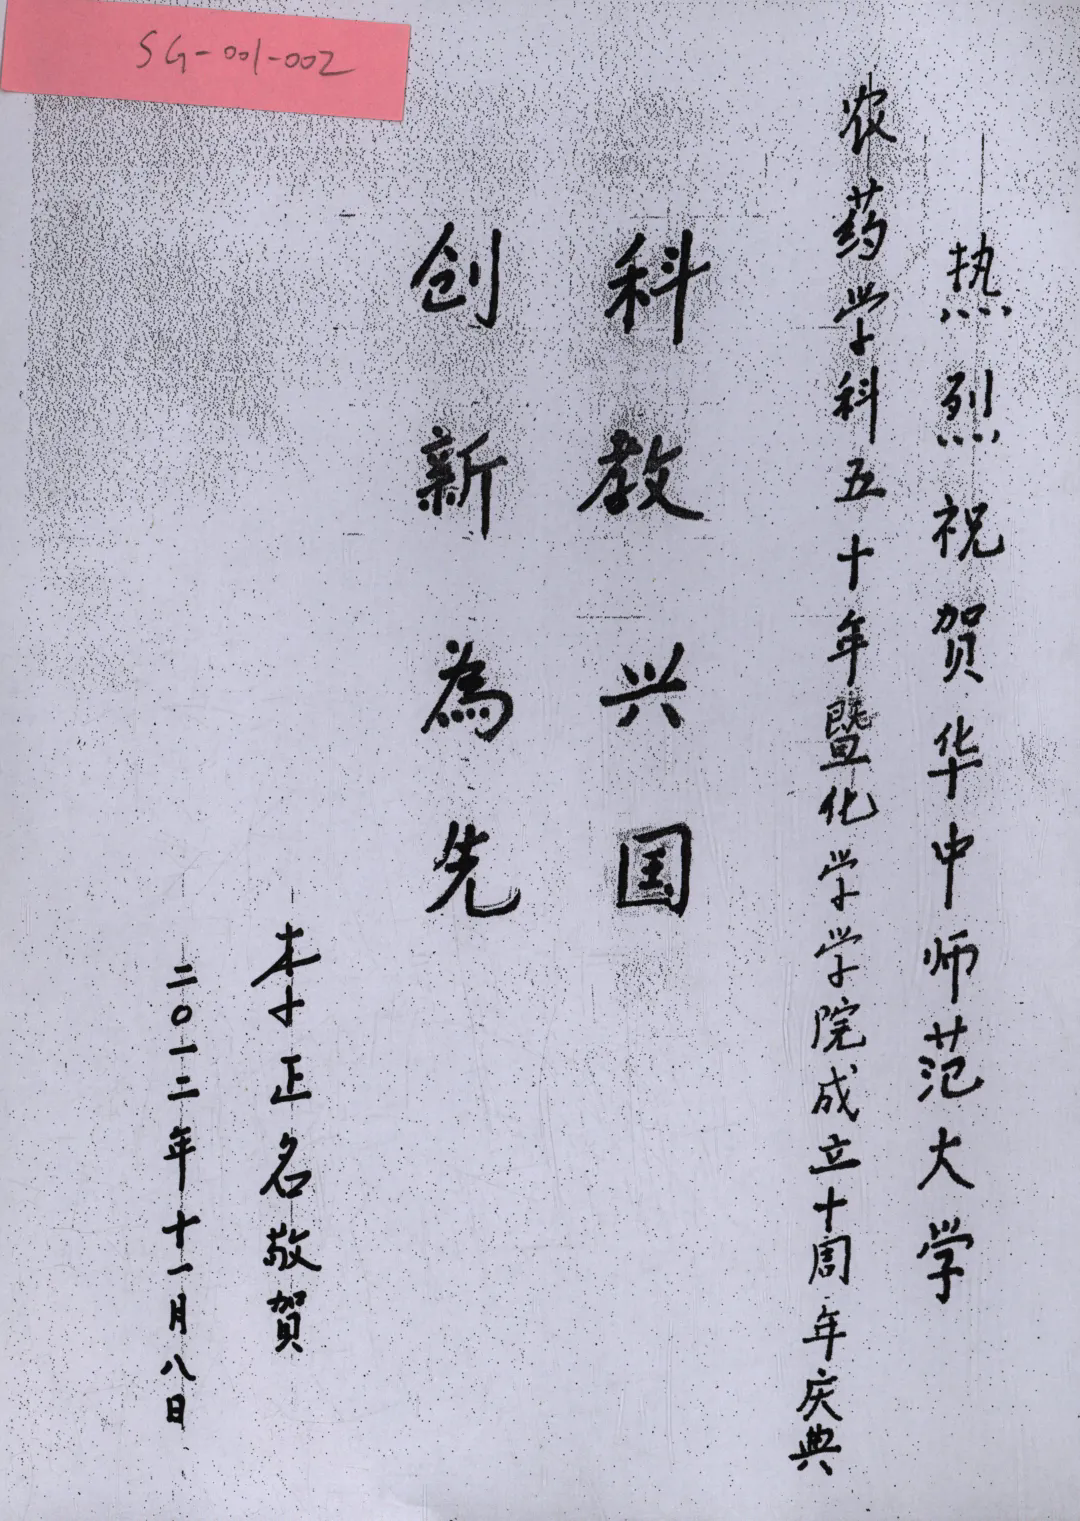 SG-001-002
热烈祝贺华中师范大学
农药学科五十年暨化学学院成立十周年庆典
科教兴国
创新為先
李正名敬賀
二〇一二年十一月八日